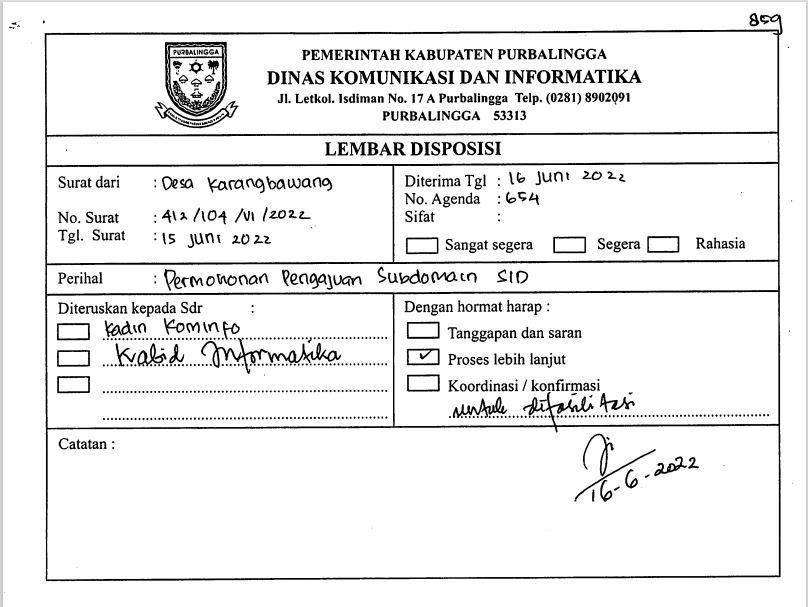 859
PURBALINGGA
PEMERINTAH KABUPATEN PURBALINGGA
DINAS KOMUNIKASI DAN INFORMATIKA
Jl. Letkol. Isdiman No. 17 A Purbalingga Telp. (0281) 8902091
PURBALINGGA 53313
LEMBAR DISPOSISI
Surat dari : Desa Karangbawang
No. Surat : 412/104/VI/2022
Tgl. Surat : 15 Juni 2022
Diterima Tgl : 16 Juni 2022
No. Agenda : 654
Sifat :
Sangat segera Segera Rahasia
Perihal : Permohonan Pengajuan Subdomain SID
Diteruskan kepada Sdr :
Kadin Kominfo
Kabid Informatika
Dengan hormat harap :
Tanggapan dan saran
✓ Proses lebih lanjut
Koordinasi / konfirmasi
untuk difasilitasi
Catatan :
16-6-2022